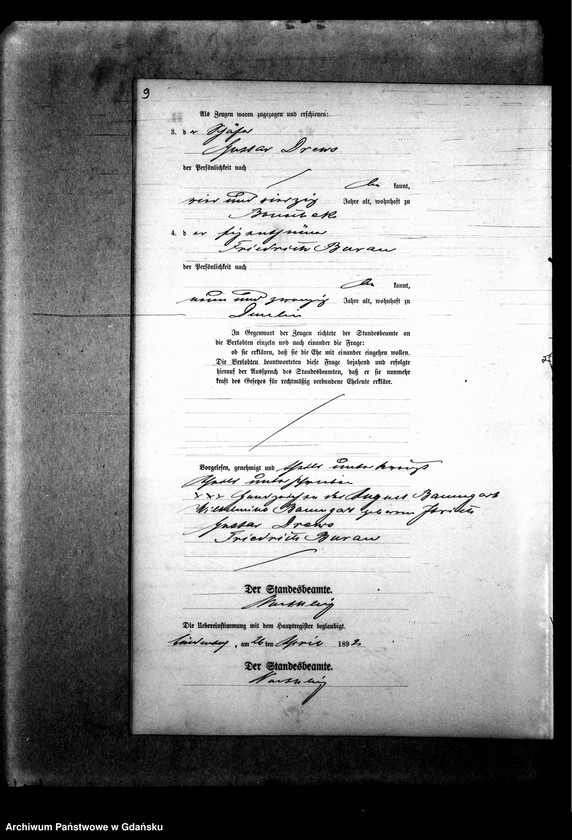 9
Als Zeugen waren zugezogen und erschienen:
3. der Schäfer
Gustav Drews
der Persönlichkeit nach
kannt,
vier und vierzig Jahre alt, wohnhaft zu
4. der Eigenthümer
Friedrich Buran
der Persönlichkeit nach
kannt,
neun und zwanzig Jahre alt, wohnhaft zu
In Gegenwart der Zeugen richtete der Standesbeamte an
die Verlobten einzeln und nach einander die Frage:
ob sie erklären, daß sie die Ehe mit einander eingehen wollen.
Die Verlobten beantworteten diese Frage bejahend und erfolgte
hierauf der Ausspruch des Standesbeamten, daß er sie nunmehr
kraft des Gesetzes für rechtmäßig verbundene Eheleute erkläre.
Vorgelesen, genehmigt und theils unterkreuzt
theils unterschrieben
+++ Handzeichen des August Baumgart
Wilhelmine Baumgart geborene
Gustav Drews
Friedrich Buran
Der Standesbeamte.
Die Uebereinstimmung mit dem Hauptregister beglaubigt.
, am 26 ten April 1892
Der Standesbeamte.
Archiwum Państwowe w Gdańsku